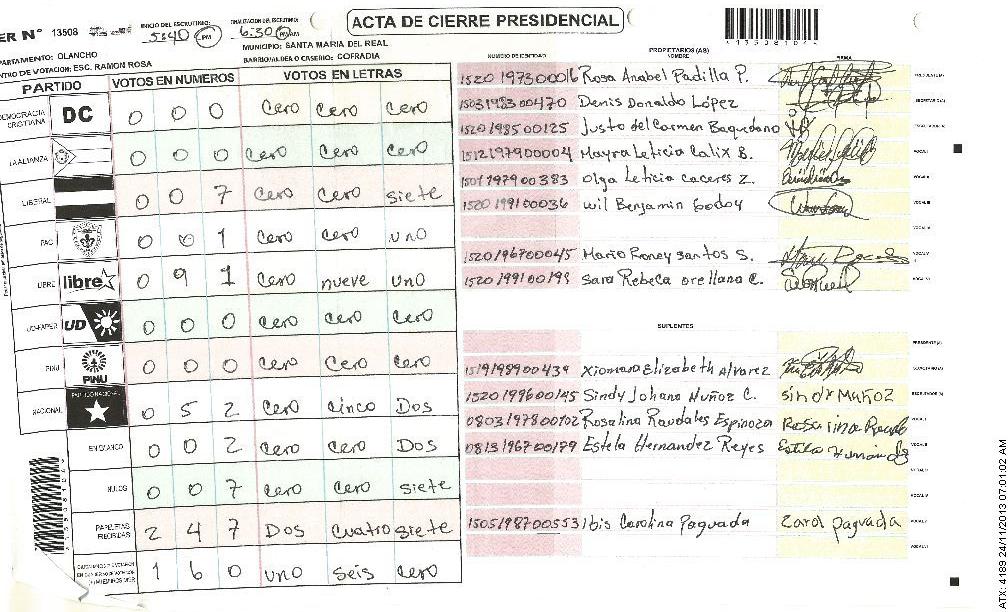 ACTA DE CIERRE PRESIDENCIAL
ER N° 13508
INICIO DEL ESCRUTINIO: 5:40 PM
FINALIZACION DEL ESCRUTINIO: 6:30 PM
DEPARTAMENTO: OLANCHO
MUNICIPIO: SANTA MARIA DEL REAL
CENTRO DE VOTACION: ESC. RAMON ROSA
BARRIO/ALDEA O CASERIO: COFRADIA
PARTIDO VOTOS EN NUMEROS VOTOS EN LETRAS
DEMOCRACIA CRISTIANA DC 0 0 0 cero cero cero
LA ALIANZA 0 0 0 cero cero cero
LIBERAL 0 0 7 cero cero siete
PAC 0 0 1 cero cero uno
LIBRE libre 0 9 1 cero nueve uno
UD-FAPER UD 0 0 0 cero cero cero
PINU PINU 0 0 0 cero cero cero
NACIONAL PARTIDO NACIONAL 0 5 2 cero cinco Dos
EN BLANCO 0 0 2 cero cero Dos
NULOS 0 0 7 cero cero siete
PAPELETAS RECIBIDAS 2 4 7 Dos cuatro siete
1 6 0 uno seis cero
PROPIETARIOS (AS)
NUMERO DE IDENTIDAD NOMBRE FIRMA
1520197300016 Rosa Anabel Padilla P. PRESIDENTE(A)
1503198300470 Denis Donaldo López SECRETARIO(A)
1520198500125 Justo del Carmen Baquedano
1512197900004 Mayra Leticia Calix B. VOCAL I
1501197900383 Olga Leticia Caceres Z. VOCAL II
1520199100036 Wil Benjamin Godoy VOCAL III
VOCAL IV
1520196700045 Mario Roney Santos S. VOCAL V
1520199100199 Sara Rebeca Orellana C. VOCAL VI
SUPLENTES
PRESIDENTE(A)
1519198900439 Xiomara Elizabeth Alvarez SECRETARIO(A)
1520199600145 Sindy Johana Nuñoz C. Sindy Muñoz ESCRUTADOR(A)
0803197800102 Rosalina Raudales Espinoza VOCAL I
0813196700179 Estela Hernandez Reyes VOCAL II
VOCAL III
VOCAL IV
1505198700553 Ibis Carolina Paguada Carol paguada VOCAL V
VOCAL VI
ATX: 4189 24/11/2013 07:01:02 AM